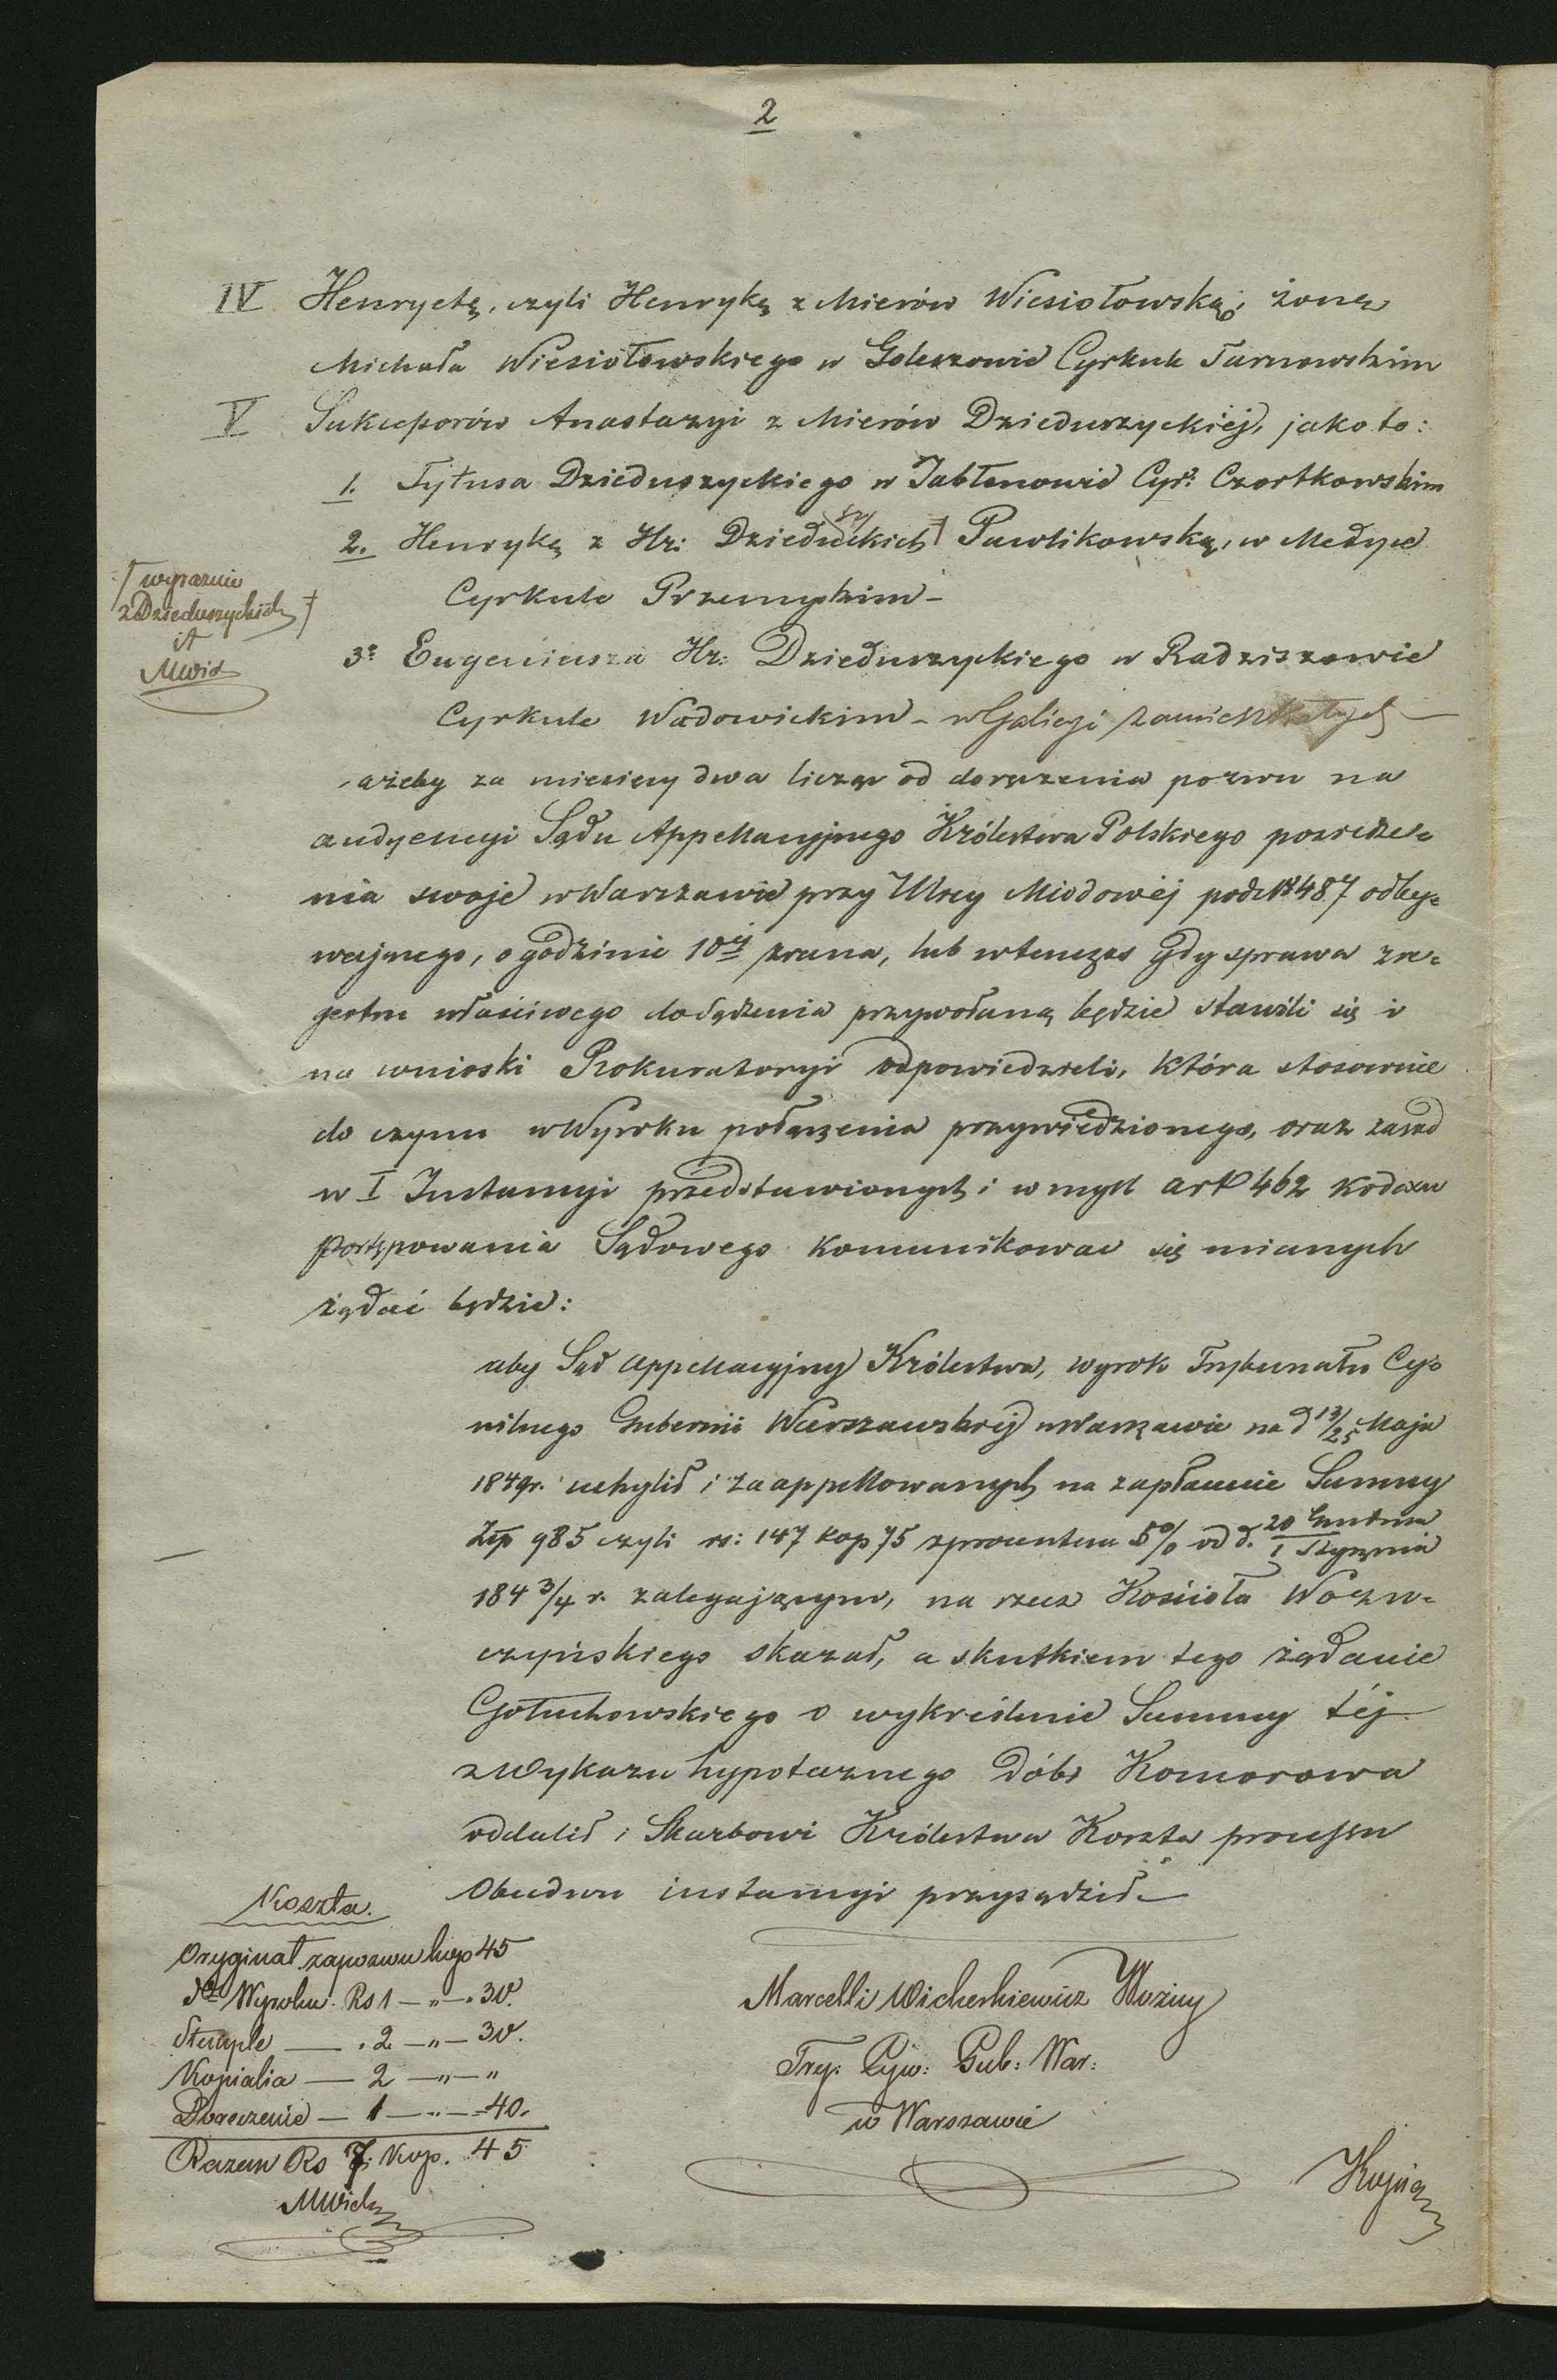 2
IV Henrychę, czyli Henrykę z Mierów Wiesiołowską, żonę
Michała Wiesiołowskiego w Goleszowie Cyrkule Tarnowskim
V Sukcessorów Anastazyi z Mierów Dzieduszyckiéj, jako to:
1. Tytusa Dzieduszyckiego w Jabłonowie Cyr: Czortkowskim
2. Henrykę z Hr: Dzieduszyckich † Pawlikowską, w Medyce
Cyrkule Przemyskim –
† wyraznie
z Dzieduszyckich †
MWich
3o Eugeniusza Hr: Dzieduszyckiego w Radziszowie
Cyrkule Wadowickim – w Galicyi zamieszkałych –
ażeby za miesięcy dwa licząc od doręczenia pozwu na
audyencyi Sądu Appellacyjnego Królestwa Polskiego posiedze=
nia swoje w Warszawie przy Ulicy Miodowéj pod No 487 odby=
wającego, o godzinie 10éj zrana, lub wtenczas gdy sprawa z re=
jestru właściwego do sądzenia przywołaną będzie stawili się i
na wnioski Prokuratoryi odpowiedzieli, która stosownie
do czynu w Wyroku połączenia przywiedzionego, oraz zasad
w I Instancyi przedstawionych i w myśl art 462 Kodexu
Postępowania Sądowego komunikować się mianych
żądać będzie:
aby Sąd Appellacyjny Królestwa, wyrok Trybunału Cy=
wilnego Gubernii Warszawskiej w Warszawie na d 13/25 Maja
1849r. uchylił i zaappellowanych na zapłacenie Summy
Złp 985 czyli rs: 147 kop 75 z procentem 5% od d. 20 Grudnia / 1 Stycznia
184 3/4 r. zalegającym, na rzecz Kościoła Wocz=
czyńskiego skazał, a skutkiem tego żądanie
Gołuchowskiego o wykreślenie Summy téj
z Wykazu hypotecznego Dóbr Komorowa
oddalił i Skarbowi Królestwa Koszta processu
Obudwu instancyi przysądził. –
Koszta.
Oryginał zapozwu kop 45
dto Wyroku. Rs 1 – „ – 30.
Stemple – . 2 – „ – 30.
Kopialia – 2 – „ – „
Doręczenie – 1 – „ – 40.
Razem Rs 7. Kop. 45
MWich
Marcelli Wicherkiewicz Woźny
Try: Cyw: Gub: War:
w Warszawie